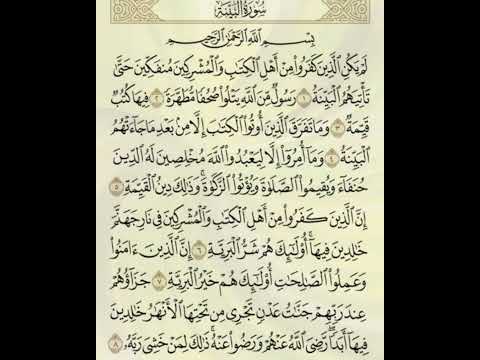 سُورَةُ الْبَيِّنَةِ
بِسْمِ اللَّهِ الرَّحْمَٰنِ الرَّحِيمِ
لَمْ يَكُنِ الَّذِينَ كَفَرُوا مِنْ أَهْلِ الْكِتَابِ وَالْمُشْرِكِينَ مُنفَكِّينَ حَتَّىٰ
تَأْتِيَهُمُ الْبَيِّنَةُ ١ رَسُولٌ مِّنَ اللَّهِ يَتْلُو صُحُفًا مُّطَهَّرَةً ٢ فِيهَا كُتُبٌ
قَيِّمَةٌ ٣ وَمَا تَفَرَّقَ الَّذِينَ أُوتُوا الْكِتَابَ إِلَّا مِن بَعْدِ مَا جَاءَتْهُمُ
الْبَيِّنَةُ ٤ وَمَا أُمِرُوا إِلَّا لِيَعْبُدُوا اللَّهَ مُخْلِصِينَ لَهُ الدِّينَ
حُنَفَاءَ وَيُقِيمُوا الصَّلَاةَ وَيُؤْتُوا الزَّكَاةَ ۚ وَذَٰلِكَ دِينُ الْقَيِّمَةِ ٥
إِنَّ الَّذِينَ كَفَرُوا مِنْ أَهْلِ الْكِتَابِ وَالْمُشْرِكِينَ فِي نَارِ جَهَنَّمَ
خَالِدِينَ فِيهَا ۚ أُولَٰئِكَ هُمْ شَرُّ الْبَرِيَّةِ ٦ إِنَّ الَّذِينَ ءَامَنُوا
وَعَمِلُوا الصَّالِحَاتِ أُولَٰئِكَ هُمْ خَيْرُ الْبَرِيَّةِ ٧ جَزَاؤُهُمْ
عِندَ رَبِّهِمْ جَنَّاتُ عَدْنٍ تَجْرِي مِن تَحْتِهَا الْأَنْهَارُ خَالِدِينَ
فِيهَا أَبَدًا ۖ رَّضِيَ اللَّهُ عَنْهُمْ وَرَضُوا عَنْهُ ۚ ذَٰلِكَ لِمَنْ خَشِيَ رَبَّهُ ٨